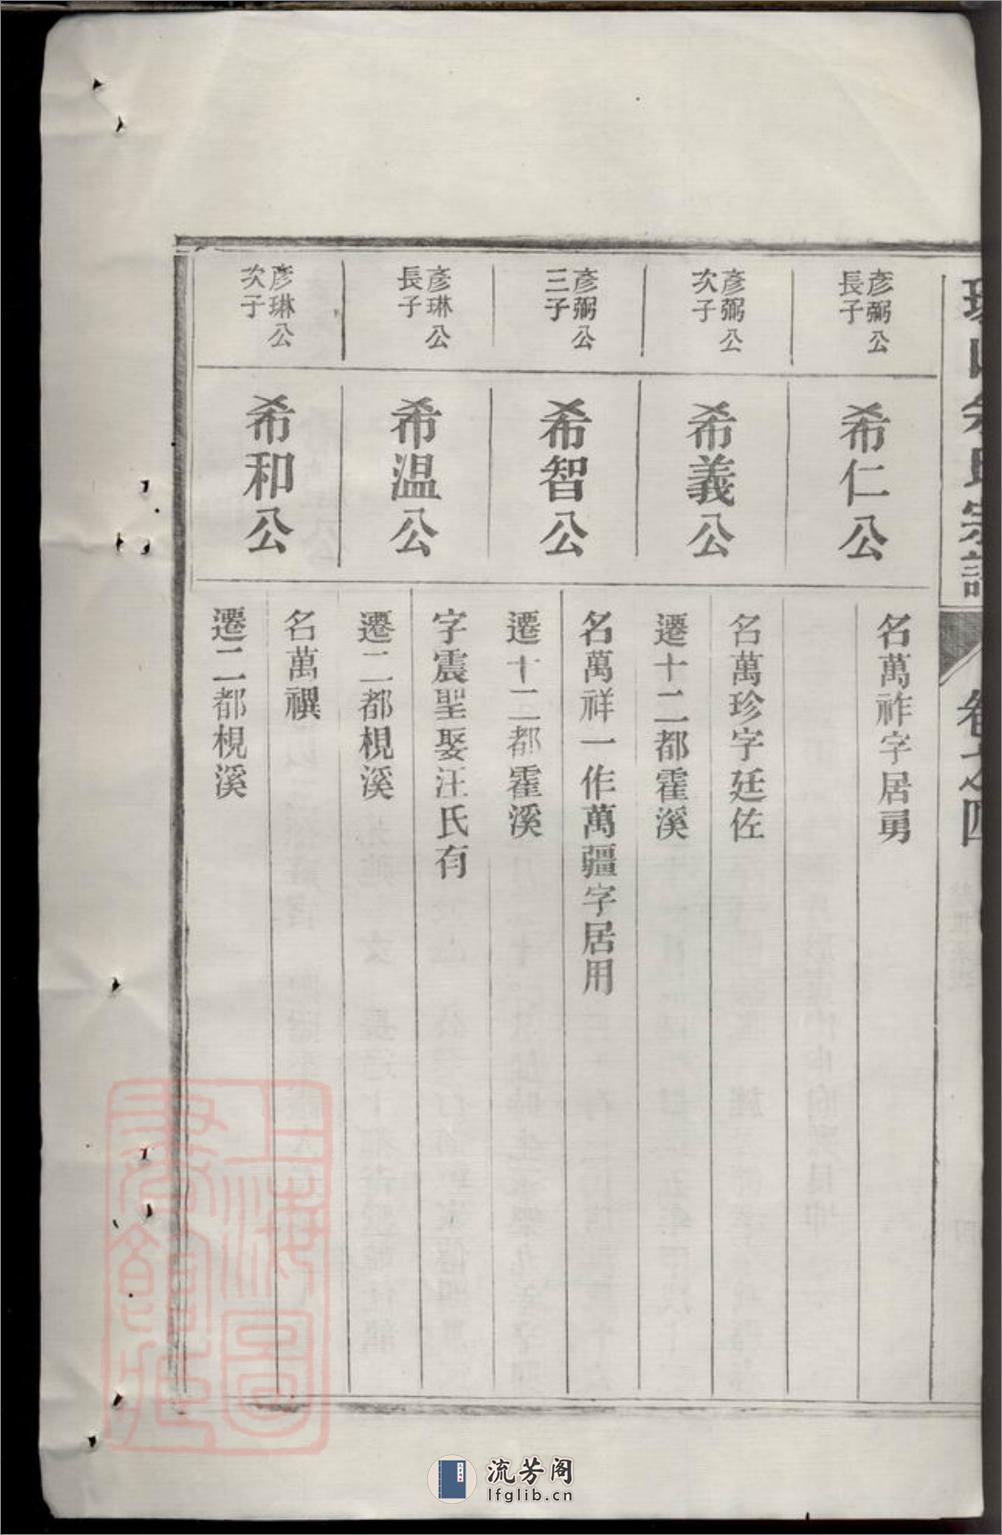 宗譜
卷之四
彥弼公
長子
希仁公
名萬祚字居勇
彥弼公
次子
希義公
名萬珍字廷佐
遷十二都霍溪
彥弼公
三子
希智公
名萬祥一作萬疆字居用
遷十二都霍溪
彥琳公
長子
希温公
字震聖娶汪氏有
遷二都梘溪
彥琳公
次子
希和公
名萬禩
遷二都梘溪
上海圖
書館藏
流芳阁
lfglib.cn